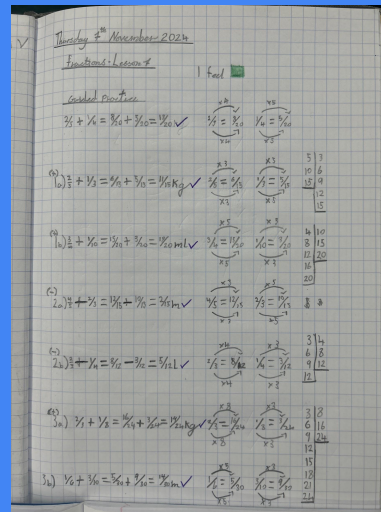 Thursday 7th November 2024
Fractions - Lesson 4
I feel
Guided Practice
2/5 + 1/4 = 8/20 + 5/20 = 13/20 ✓ 2/5 = 8/20 1/4 = 5/20
×4 ×5
1a) 2/5 + 1/3 = 6/15 + 5/15 = 11/15 kg ✓ 2/5 = 6/15 1/3 = 5/15
×3
5 3
10 6
15 9
12
15
1b) 3/4 + 2/10 = 15/20 + 4/20 = 19/20 ml ✓
×5
4 10
8 15
12 20
16
20
2a) 4/5 - 2/3 = 12/15 - 10/15 = 2/15 m ✓ 4/5 = 12/15 2/3 = 10/15
×3 ×5
2b) 2/3 - 1/4 = 8/12 - 3/12 = 5/12 l ✓ 2/3 = 8/12 1/4 = 3/12
×4 ×3
3 4
6 8
9 12
12
3a) 2/3 + 1/8 = 16/24 + 3/24 = 19/24 kg ✓ 2/3 = 16/24 1/8 = 3/24
×8 ×3
3 8
6 16
9 24
12
15
18
21
24
3b) 1/6 + 3/10 = 5/30 + 9/30 = 14/30 m ✓ 1/6 = 5/30 3/10 = 9/30
×5 ×3